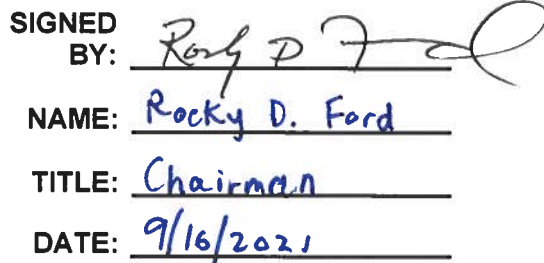 SIGNED
BY: Rocky D Ford
NAME: Rocky D. Ford
TITLE: Chairman
DATE: 9/16/2021